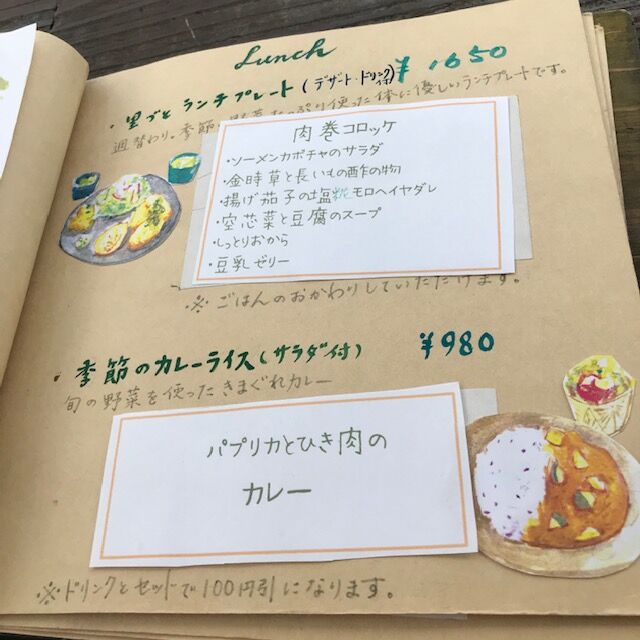 Lunch
・里ごと ランチプレート(デザート・ドリンク付) ¥1650
週替わり。季節 っぷり使った体に優しいランチプレートです。
肉巻コロッケ
・ソーメンカボチャのサラダ
・金時草と長いもの酢の物
・揚げ茄子の塩糀モロヘイヤダレ
・空芯菜と豆腐のスープ
・しっとりおから
・豆乳ゼリー
※ ごはんのおかわりしていただけます。
・季節のカレーライス(サラダ付) ¥980
旬の野菜を使ったきまぐれカレー
パプリカとひき肉の
カレー
※ドリンクとセットで100円引になります。